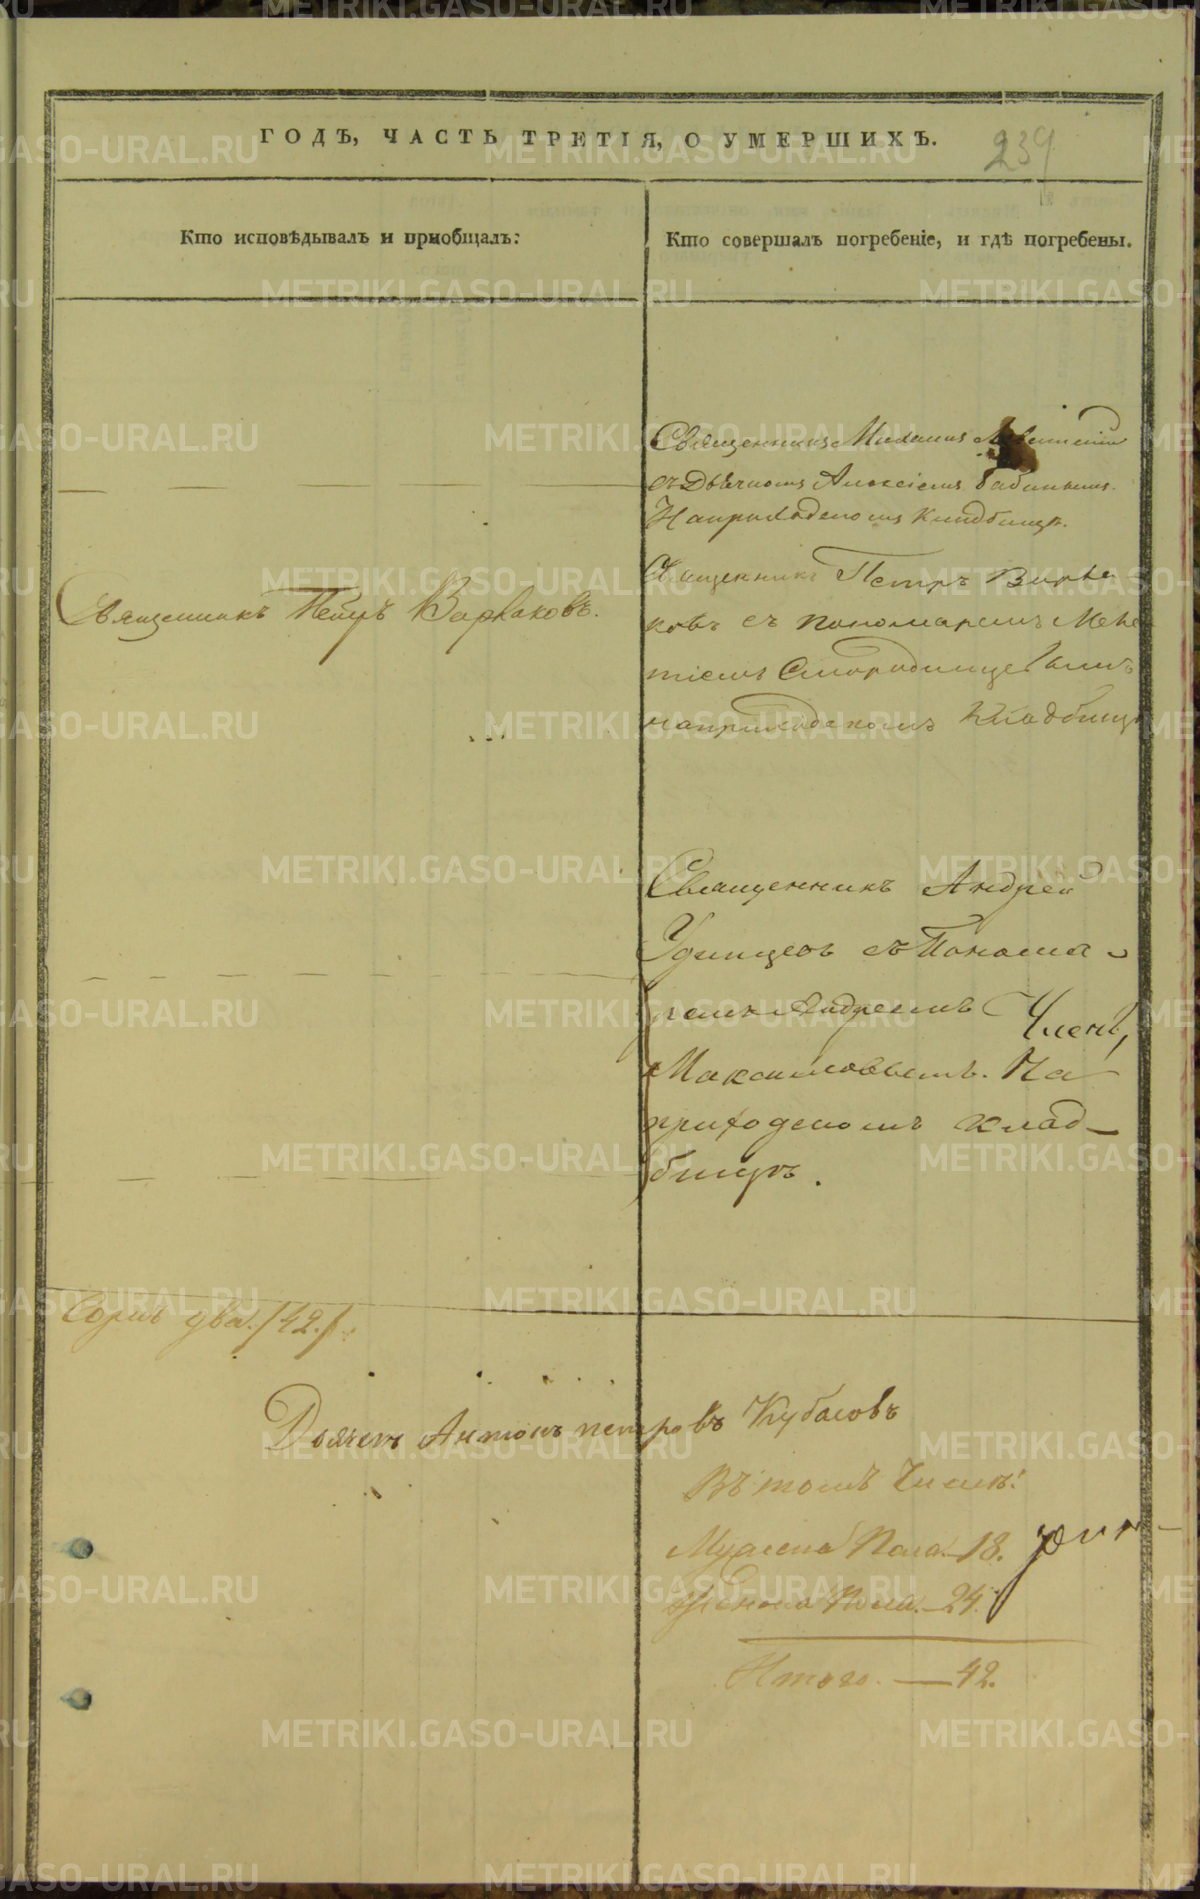 ГОДЪ, ЧАСТЬ ТРЕТІЯ, О УМЕРШИХЪ.
239
Кто исповѣдывалъ и пріобщалъ:
Кто совершалъ погребеніе, и гдѣ погребены.
Священникъ
съ Дьячкомъ Алексіемъ Бабинымъ.
На приходскомъ кладбищѣ.
Священникъ Петръ Варваковъ.
Священникъ Петръ Варва
ковъ съ пономаремъ Меле
тіемъ Смородинцевымъ
на приходскомъ кладбищѣ
Священникъ Андрей
Удинцов съ Понома-
ремъ Андреемъ
Членъ,
Максимовымъ. На
приходскомъ клад-
бищѣ.
Сорокъ два /42./
Дьячекъ Антонъ петровъ Кубасовъ
Въ томъ Числѣ:
Мужеска Пола - 18.
Женска Пола. - 24.
Итого. — 42.
METRIKI.GASO-URAL.RU